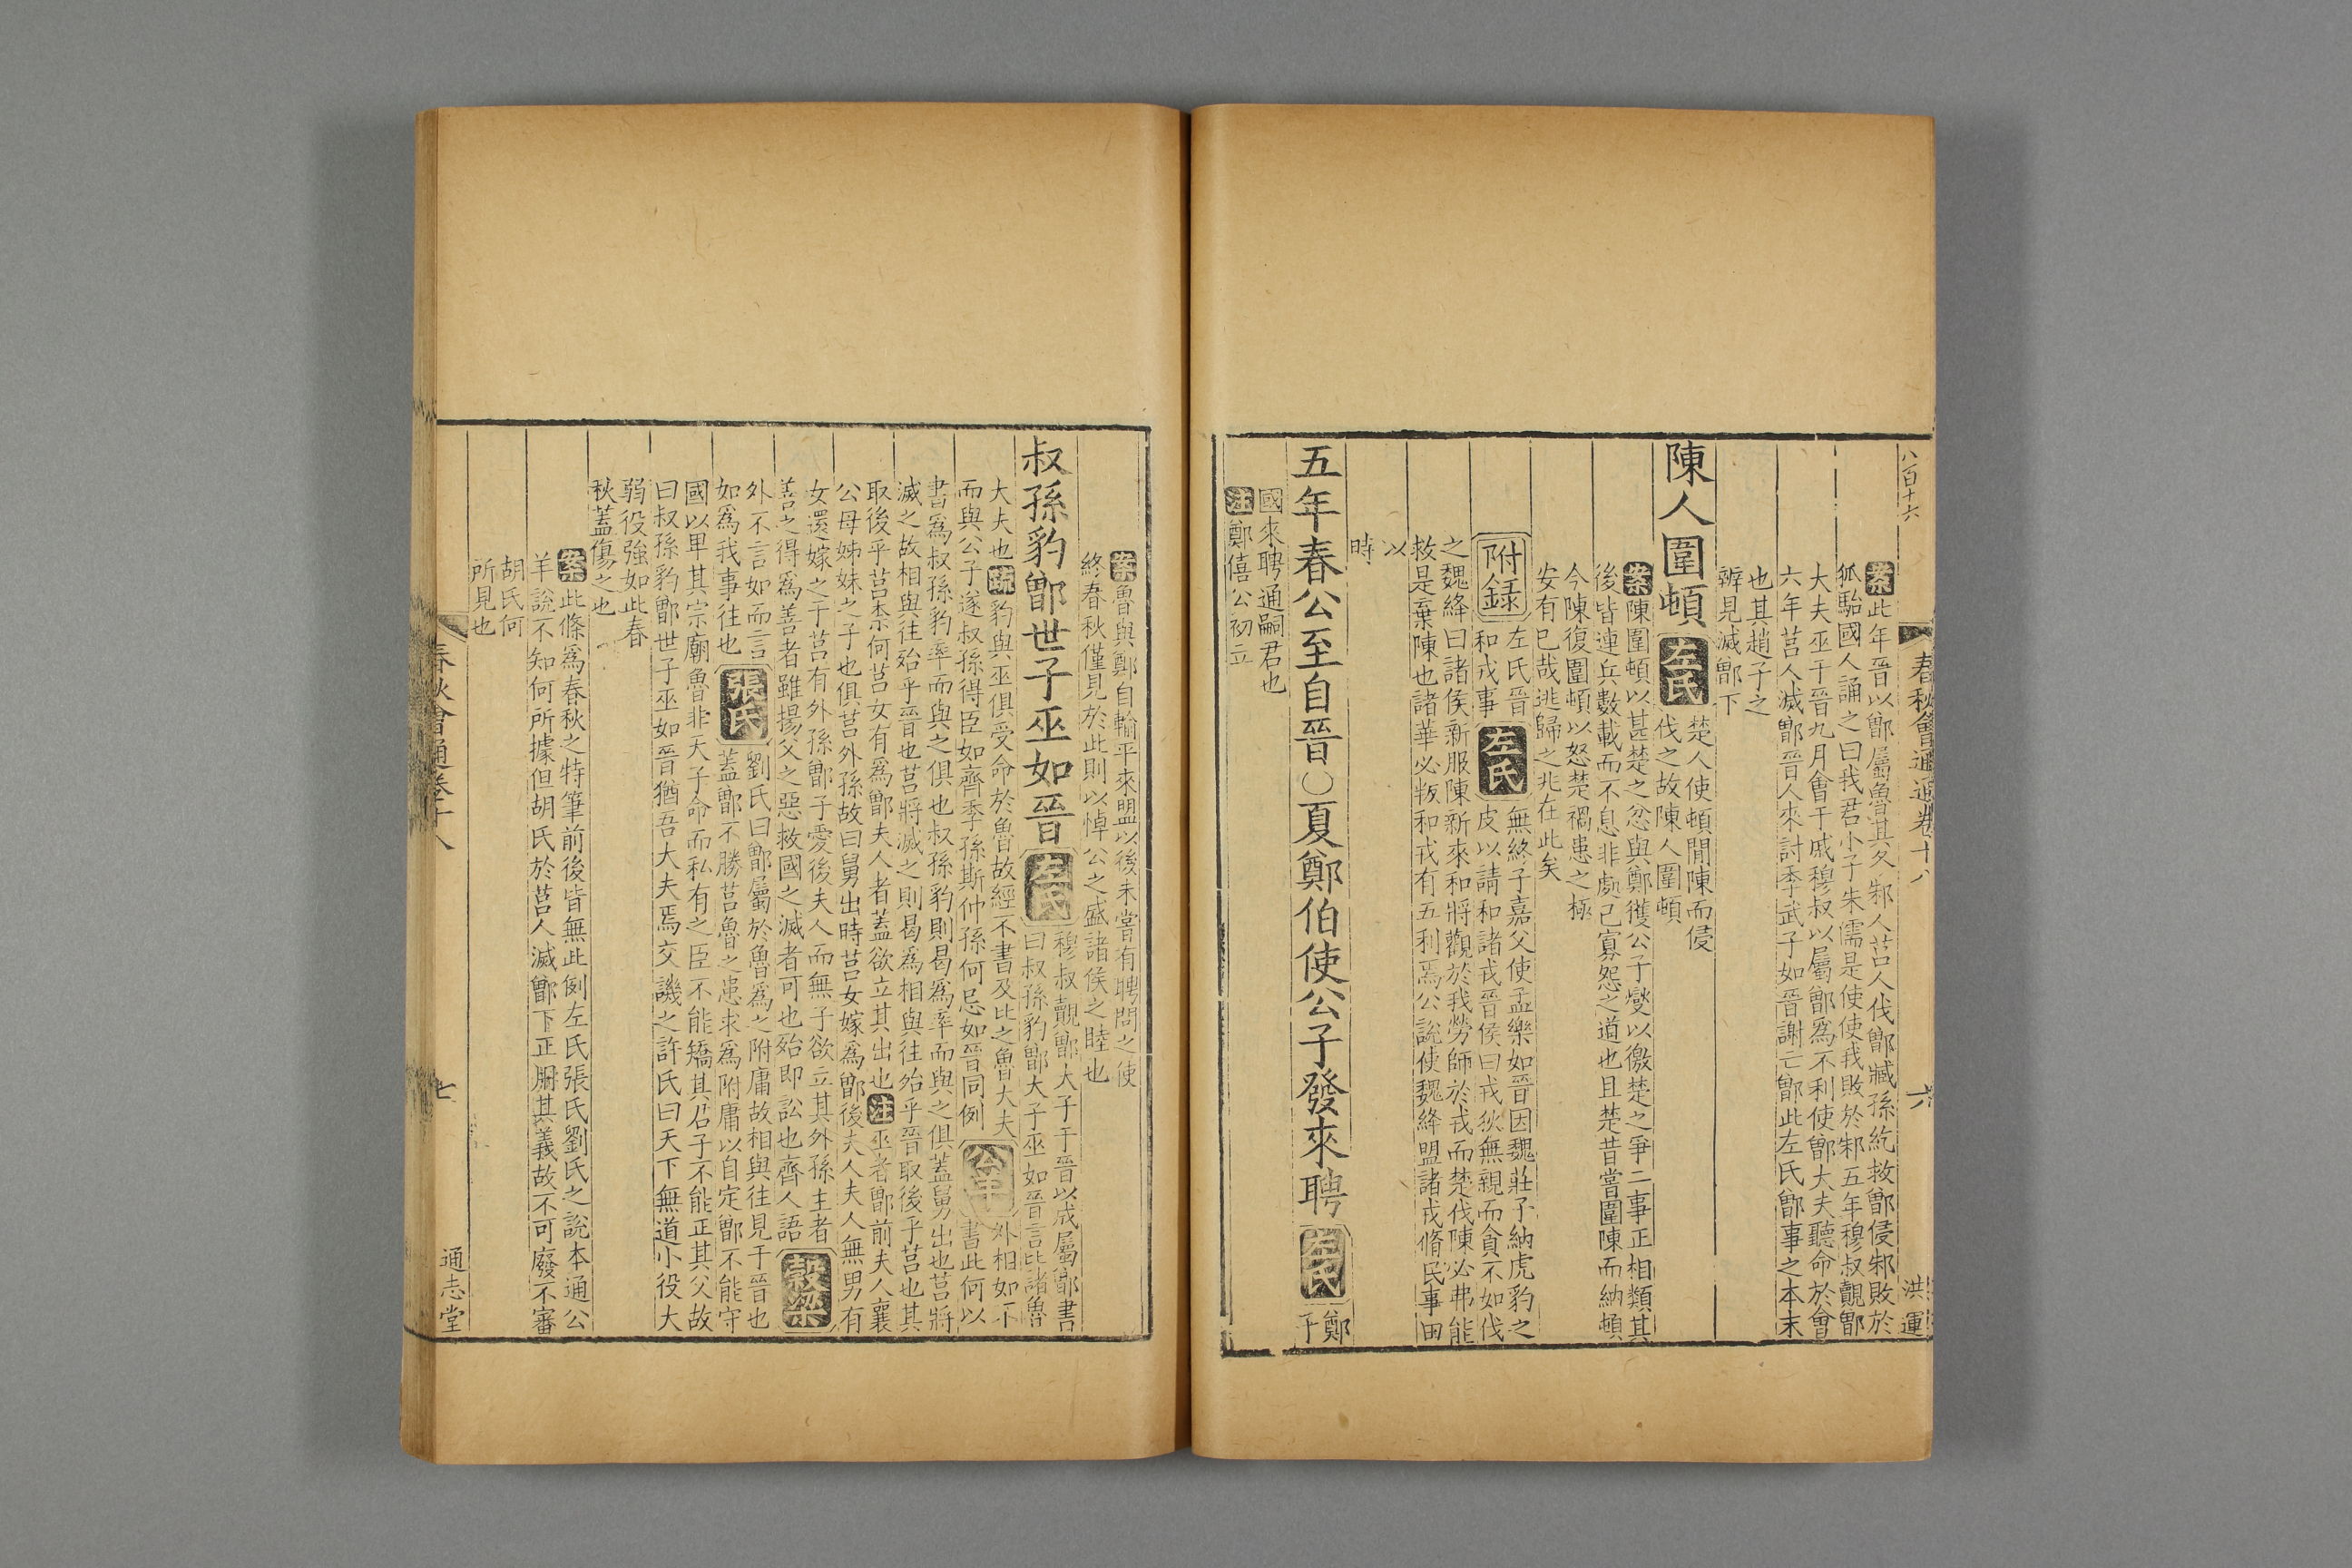 八百十六
春秋會通卷十八
六
洪運
案此年晉以鄫屬魯其冬邾人莒人伐鄫臧孫紇救鄫侵邾敗於
狐駘國人誦之曰我君小子朱儒是使使我敗於邾五年穆叔覿鄫
大夫巫于晉九月會于戚穆叔以屬鄫爲不利使鄫大夫聽命於會
六年莒人滅鄫晉人來討季武子如晉謝亡鄫此左氏鄫事之本末
也其趙子之
辨見滅鄫下
陳人圍頓
左氏
楚人使頓間陳而侵
伐之故陳人圍頓
案陳圍頓以甚楚之忿與鄭獲公子燮以徼楚之爭二事正相類其
後皆連兵數載而不息非處己寡怨之道也且楚昔嘗圍陳而納頓
今陳復圍頓以怒楚禍患之極
安有已哉逃歸之兆在此矣
附録
左氏晉
和戎事
左氏
無終子嘉父使孟樂如晉因魏莊子納虎豹之
皮以請和諸戎晉侯曰戎狄無親而貪不如伐
之魏絳曰諸侯新服陳新來和將觀於我勞師於戎而楚伐陳必弗能
救是棄陳也諸華必叛和戎有五利焉公説使魏絳盟諸戎脩民事田
以
時
五年春公至自晉○夏鄭伯使公子發來聘
左氏
鄭
子
國來聘通嗣君也
注鄭僖公初立
案魯與鄭自輸平來盟以後未嘗有聘問之使
終春秋僅見於此則以悼公之盛諸侯之睦也
叔孫豹鄫世子巫如晉
左氏
穆叔覿鄫大子于晉以成屬鄫書
曰叔孫豹鄫大子巫如晉言比諸魯
大夫也疏豹與巫俱受命於魯故經不書及比之魯大夫
而與公子遂叔孫得臣如齊季孫斯仲孫何忌如晉同例
公羊
外相如不
書此何以
書爲叔孫豹率而與之俱也叔孫豹則曷爲率而與之俱蓋舅出也莒將
滅之故相與往殆乎晉也莒將滅之則曷爲相與往殆乎晉取後乎莒也其
取後乎莒柰何莒女有爲鄫夫人者蓋欲立其出也注巫者鄫前夫人襄
公母姊妹之子也俱莒外孫故曰舅出時莒女嫁爲鄫後夫人夫人無男有
女還嫁之于莒有外孫鄫子愛後夫人而無子欲立其外孫主者
善之得爲善者雖揚父之惡救國之滅者可也殆即訟也齊人語
穀梁
外不言如而言
如爲我事往也
張氏
劉氏曰鄫屬於魯爲之附庸故相與往見于晉也
蓋鄫不勝莒魯之患求爲附庸以自定鄫不能守
國以卑其宗廟魯非天子命而私有之臣不能矯其君子不能正其父故
曰叔孫豹鄫世子巫如晉猶吾大夫焉交譏之許氏曰天下無道小役大
弱役強如此春
秋蓋傷之也
案此條爲春秋之特筆前後皆無此例左氏張氏劉氏之說本通公
羊說不知何所據但胡氏於莒人滅鄫下正用其義故不可廢不審
胡氏何
所見也
春秋會通卷十八
七
通志堂